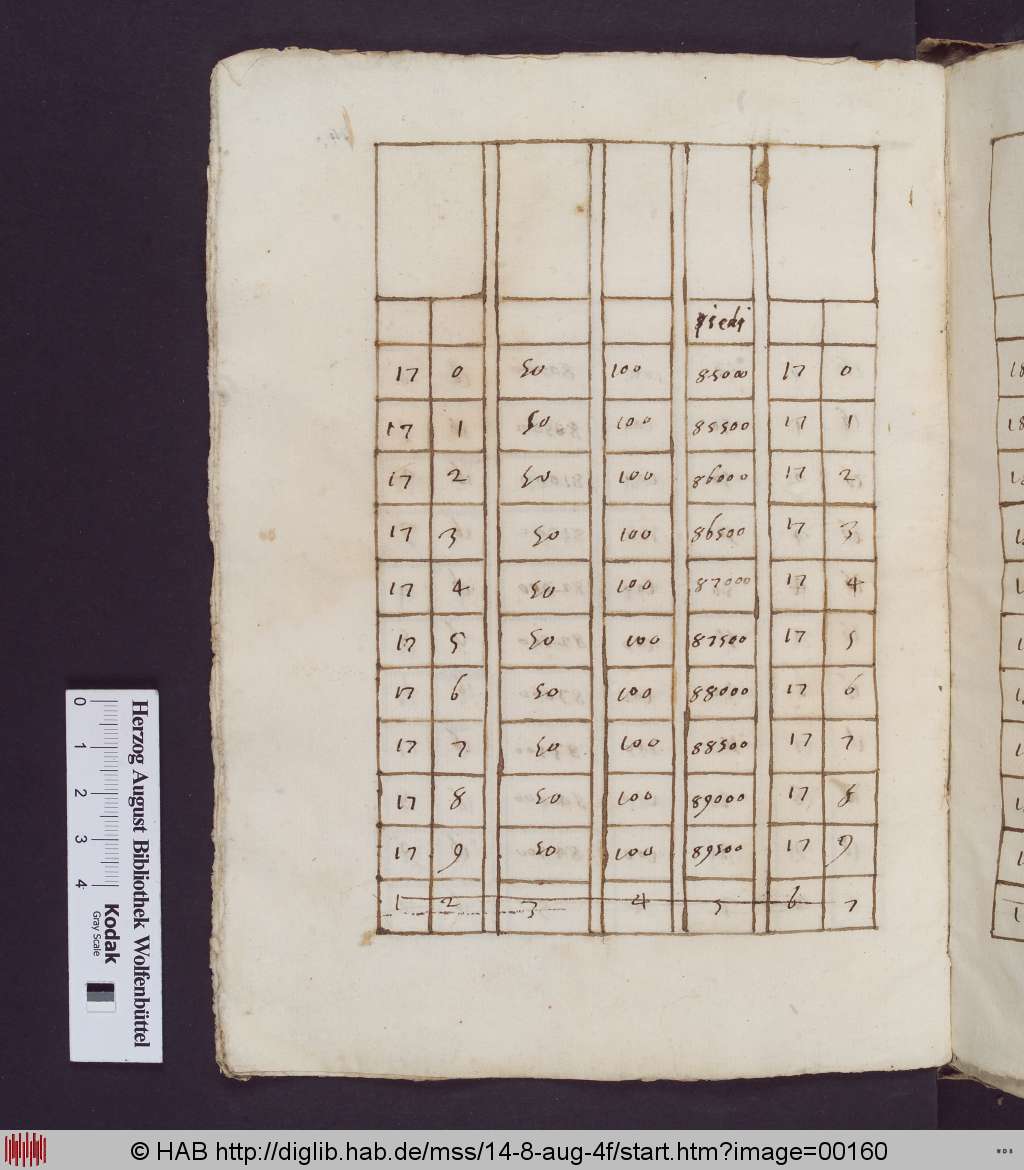 piedi
17 0 50 100 85000 17 0
17 1 50 100 85500 17 1
17 2 50 100 86000 17 2
17 3 50 100 86500 17 3
17 4 50 100 87000 17 4
17 5 50 100 87500 17 5
17 6 50 100 88000 17 6
17 7 50 100 88500 17 7
17 8 50 100 89000 17 8
17 9 50 100 89500 17 9
1 2 3 4 5 6 7
18
18
0 1 2 3 4
Herzog August Bibliothek Wolfenbüttel
Kodak
Gray Scale
© HAB http://diglib.hab.de/mss/14-8-aug-4f/start.htm?image=00160